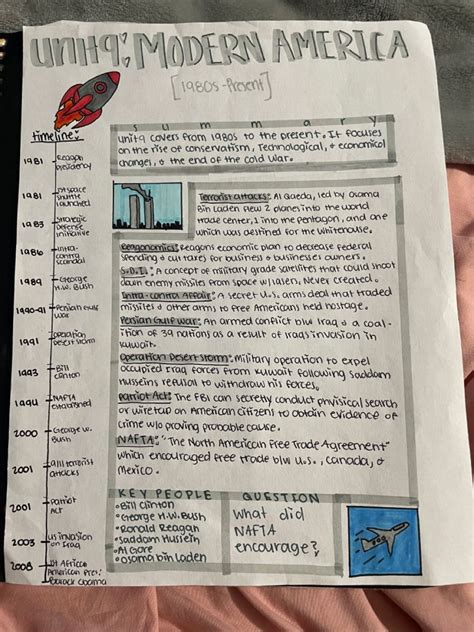 Unit 9: MODERN AMERICA
[1980s-Present]
timeline:
1981 Reagan presidency
1981 1st space shuttle launched
1983 Strategic Defense Initiative
1986 Intra-contra scandal
1989 George H.W. Bush
1990-91 Persian Gulf war
1991 Operation Desert Storm
1993 Bill Clinton
1994 NAFTA established
2000 George W. Bush
2001 9/11 terrorist attacks
2001 Patriot Act
2003 US invasion on Iraq
2008 1st African American Pres: Barack Obama
summary
Unit 9 covers from 1980s to the present. It focuses
on the rise of conservatism, Technological, & economical
changes, & the end of the Cold War.
Terrorist attacks: Al Qaeda, led by Osama
Bin Laden flew 2 planes into the world
trade center, 1 into the pentagon, and one
which was destined for the Whitehouse.
Reaganomics: Reagans economic plan to decrease federal
spending & cut taxes for business & businesses owners.
S.D.I.: A concept of military grade satellites that could shoot
down enemy missiles from space w/ lasers. Never created.
Intra-contra Affair: A secret U.S. arms deal that traded
missiles & other arms to free Americans held hostage.
Persian Gulf War: An armed conflict b/w Iraq & a coal-
ition of 39 nations as a result of Iraqs invasion in
Kuwait.
Operation Desert Storm: Military operation to expel
occupied Iraq forces from Kuwait following Saddam
Husseins refusal to withdraw his forces.
Patriot Act: The FBI can secretly conduct physical search
or wiretap on American citizens to obtain evidence of
crime w/o proving probable cause.
NAFTA: "The North American Free Trade Agreement"
which encouraged free trade b/w U.S., Canada, &
Mexico.
KEY PEOPLE
• Bill Clinton
• George H.W. Bush
• Ronald Reagan
• Saddam Hussein
• Al Gore
• Osama bin Laden
QUESTION
What did
NAFTA
encourage?